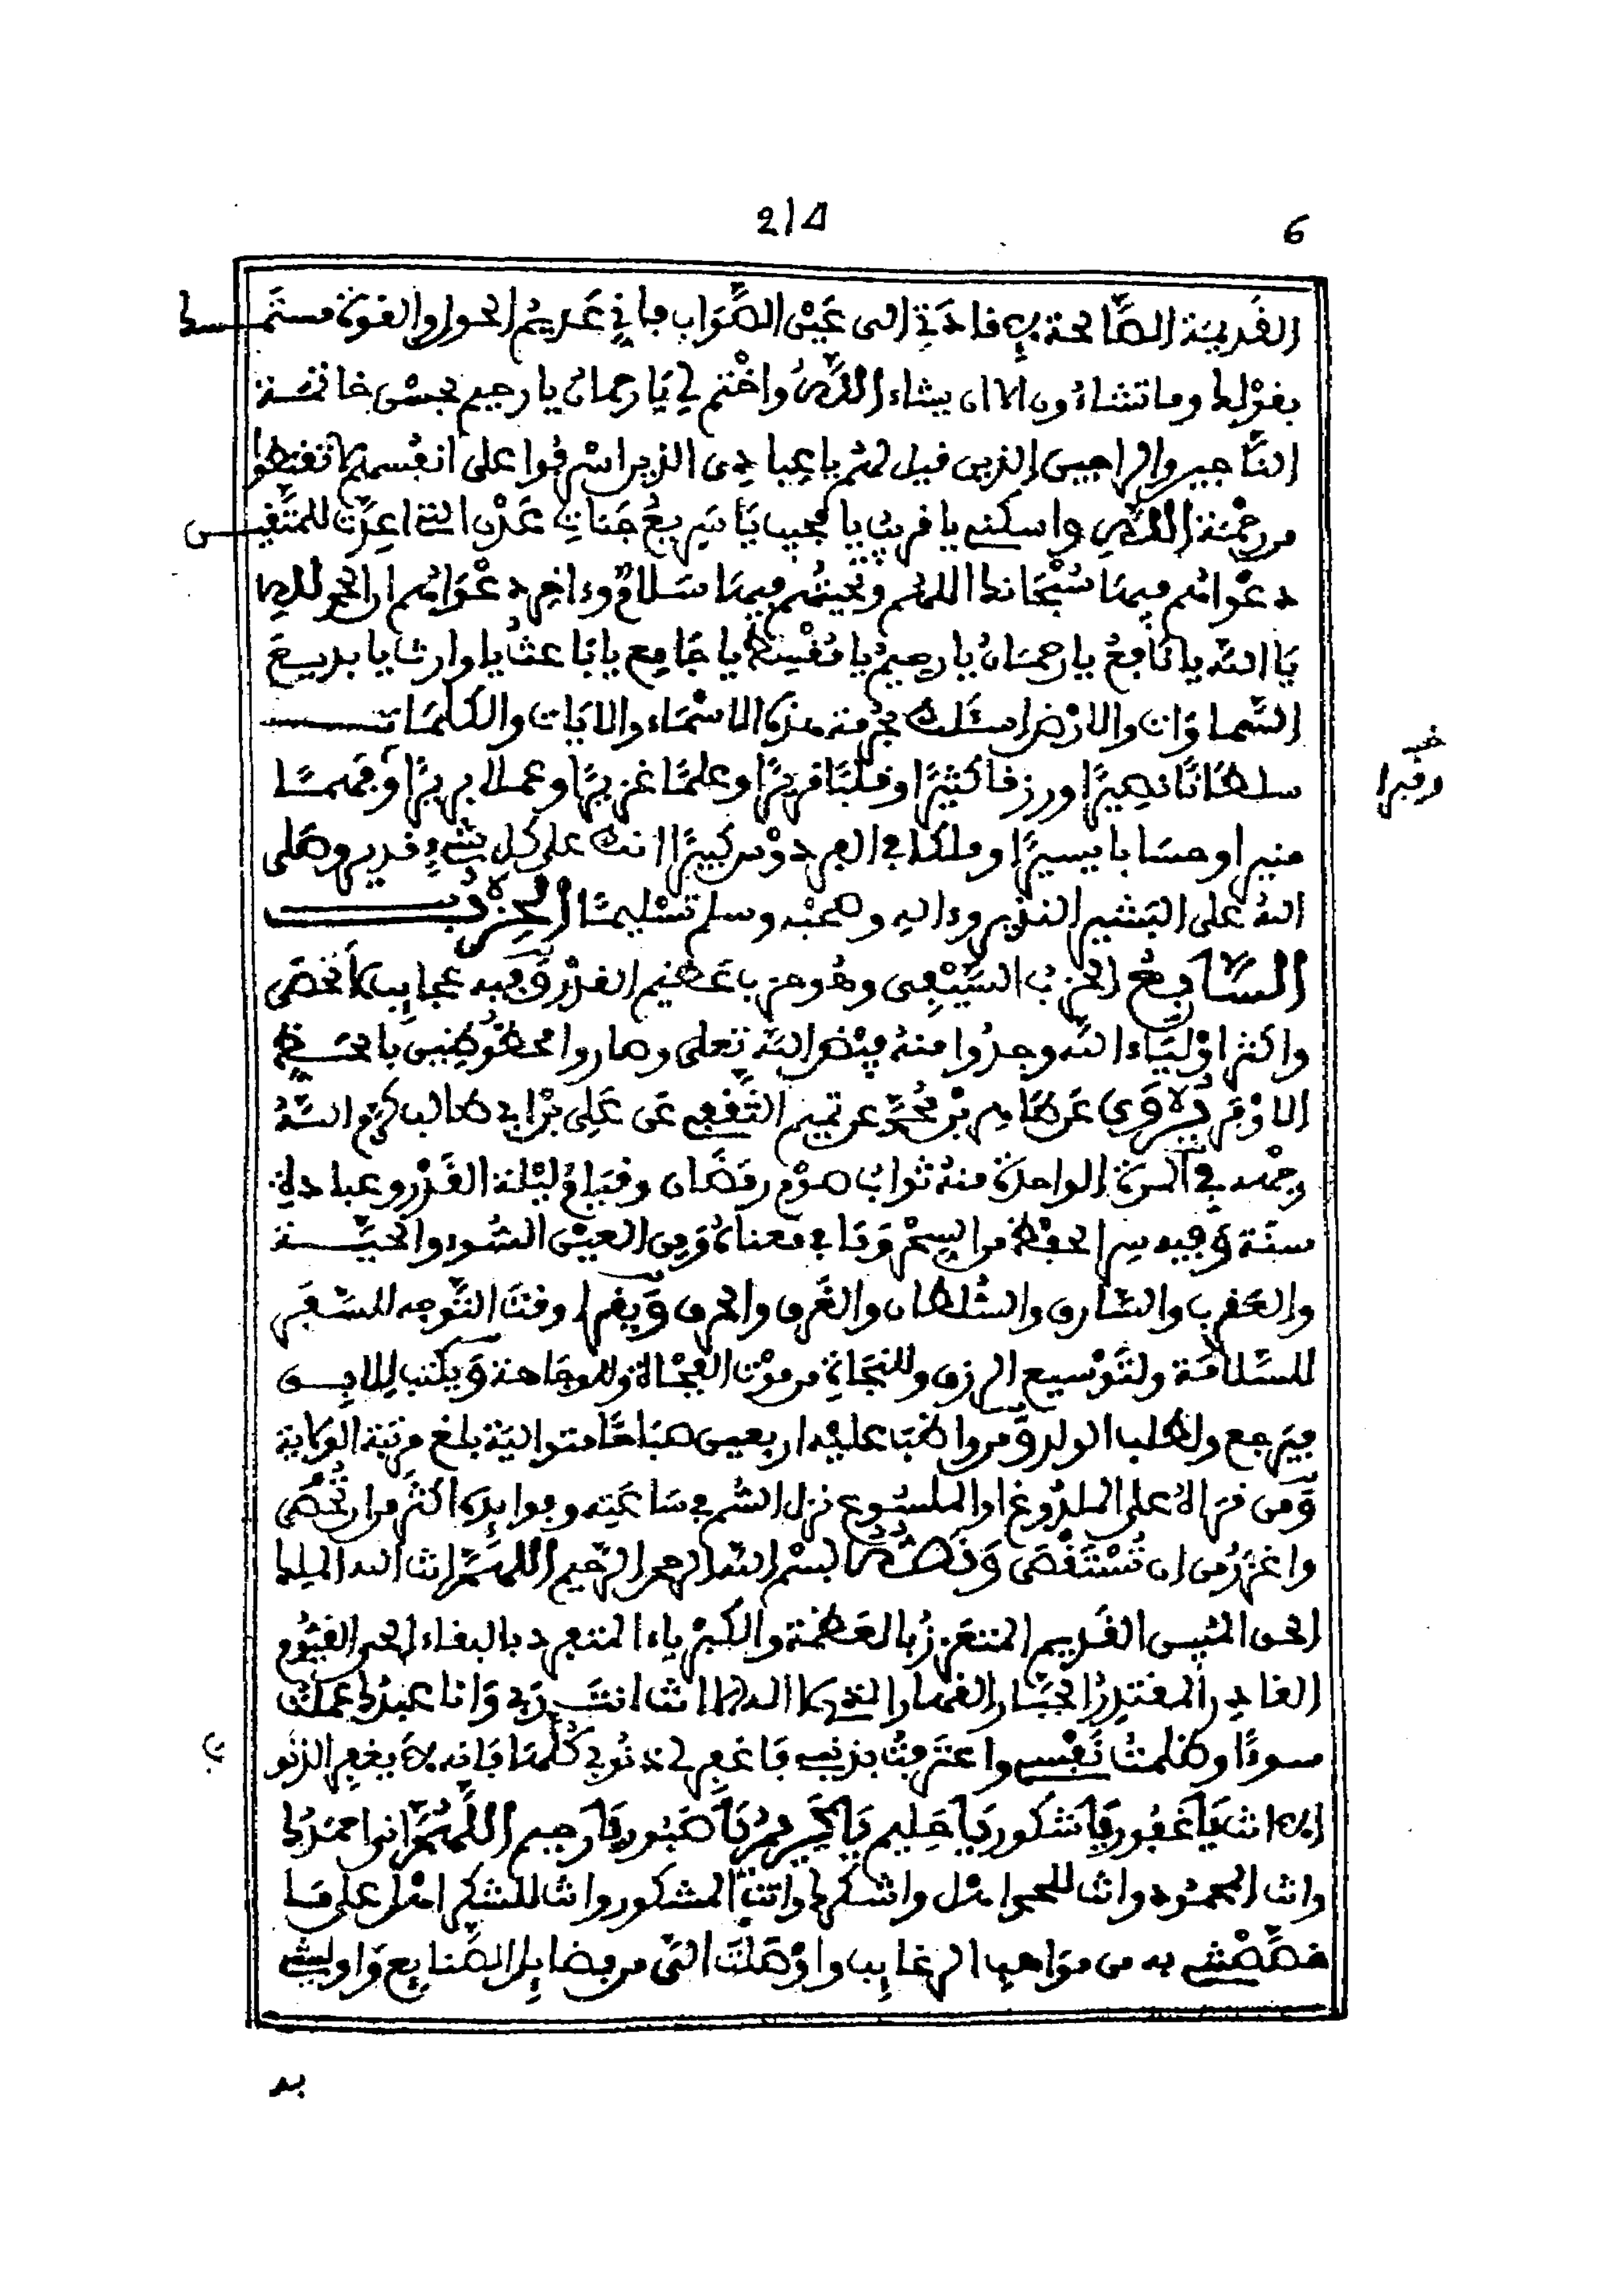 2/4
6
القريبة الصالحة لإفادتي الى عين الصواب فإني عديم الحول والقوة مستمسط
بقولك وما تشاءون الا ان يشاء الله واختم لي يا رحمان يا رحيم بحسن خاتمة
الناجين والراجين الذين قيل لهم يا عبادى الذين اسرفوا على انفسهم لا تقنطوا
من رحمة الله واسكني يا قريب يا مجيب يا سريع جنات عدن التي اعدت للمتقين
دعواهم فيها سبحانك اللهم وتحيتهم فيها سلام وءاخر دعواهم ان الحمد لله
يا الله يا نافع يا رحمان يا رحيم يا مقسط يا جامع يا باعث يا وارث يا بديع
السماوات والارض اسئلك بحرمة هذه الاسماء والايات والكلمات
سلطانا نصيرا ورزقا كثيرا وقلبا قريرا وعلما غزيرا وعملا بريرا وفهما
خـ وقبرا
منيرا وحسابا يسيرا وملكا في الفردوس كبيرا انك على كل شيء قدير وصلى
الله على البشير النذير وءاله وصحبه وسلم تسليما الحزب
السابع الحزب السيفي وهو حزب عظيم القدر وفيه عجايب لا تحصى
واكثر اولياء الله وجدوا منه فيض الله تعلى وصاروا محظوظين بالحظ
الاوفر يروى عن صامر بن محمد عن تميم الثقفي عن علي بن ابي طالب كرم الله
وجهه في المرة الواحدة منه ثواب صوم رمضان وقيام ليلة القدر وعبادة
سنة وفيه سر الحفظ من السحر وما في معناه ومن العين السوء والحية
والعقرب والسارق والسلطان والغرق والحرق ويقرا وقت التوجه للسفر
للسلامة ولتوسيع الرزق وللنجاة من موت الفجاة وللوجاهة ويكتب للابق
فيرجع ولطلب الولد ومن واظب عليه اربعين صباحا متوالية بلغ مرتبة الولاية
ومن قراه على الملدوغ او الملسوع نزل السم في ساعته وفوايده اكثر من ان تحصى
واغزر من ان تستقصى ونصه بسم الله الرحمن الرحيم اللهم انت الله الملك
الحق المبين القديم المتعزز بالعظمة والكبرياء المتفرد بالبقاء الحي القيوم
القادر المقتدر الجبار القهار الذي لا اله الا انت انت ربي وانا عبدك عملت
سوءا وظلمت نفسي واعترفت بذنبي فاغفر لي ذنوبي كلها فانه لا يغفر الذنو
ب
الا انت يا غفور يا شكور يا حليم يا كريم يا صبور يا رحيم اللهم اني احمدك
وانت المحمود وانت للحمد اهل واشكرك وانت المشكور وانت للشكر اهل على ما
خصصتني به من مواهب الرغايب واوصلت الي من فضايل الصنايع واوليتني
به